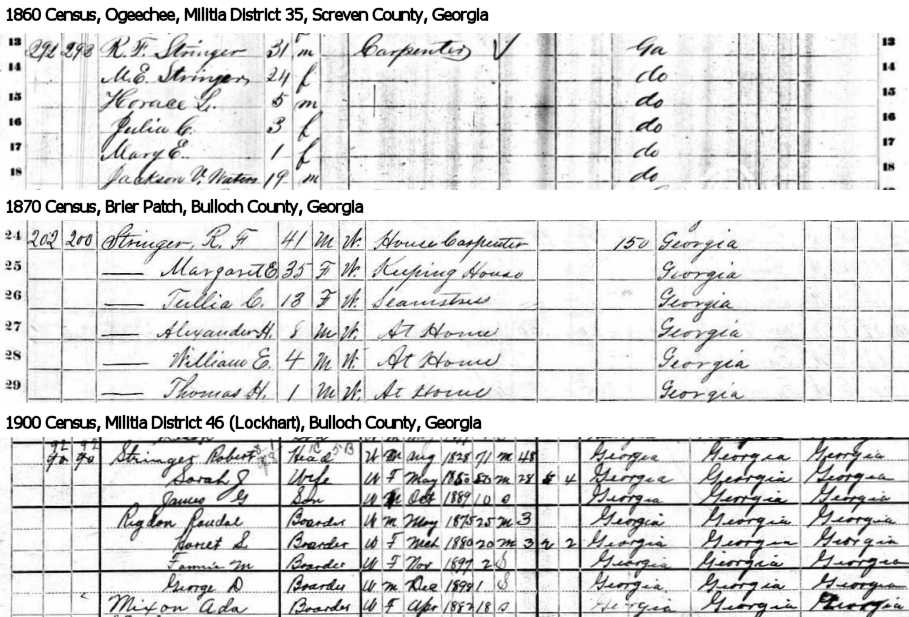 1860 Census, Ogeechee, Militia District 35, Screven County, Georgia
13 292 293 R. F. Stringer 31 m Carpenter Ga 13
14 M. E. Stringer 24 f do 14
15 Horace L. 5 m do 15
16 Julia C. 3 f do 16
17 Mary E. 1 f do 17
18 Jackson V. Waters 19 m do 18
1870 Census, Brier Patch, Bulloch County, Georgia
24 202 200 Stringer, R. F 41 M W. House Carpenter 150 Georgia
25 — Margaret E. 35 F W. Keeping House Georgia
26 — Tullia C. 13 F W. Seamstress Georgia
27 — Alexander H. 8 M W. At Home Georgia
28 — William E. 4 M W. At Home Georgia
29 — Thomas H. 1 M W. At Home Georgia
1900 Census, Militia District 46 (Lockhart), Bulloch County, Georgia
Stringer Robert Head W M Aug 1828 71 M 48 Georgia Georgia Georgia
Sarah J Wife W F May 1850 50 M 28 5 4 Georgia Georgia Georgia
James G Son W M Oct 1889 10 S Georgia Georgia Georgia
Rigdon Boarder W M May 1875 25 M 3 Georgia Georgia Georgia
S. Boarder W F Mch 1880 20 M 3 2 2 Georgia Georgia Georgia
Fannie M Boarder W F Nov 1897 2 S Georgia Georgia Georgia
George D Boarder W M Dec 1898 1 S Georgia Georgia Georgia
Mixon Ada Boarder W F Apr 1882 18 S Georgia Georgia Georgia